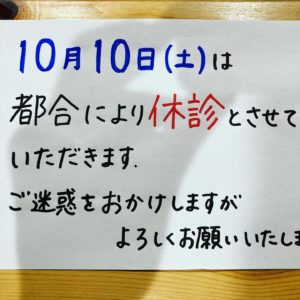 10月10日(土)は
都合により休診とさせて
いただきます.
ご迷惑をおかけしますが
よろしくお願いいたしま